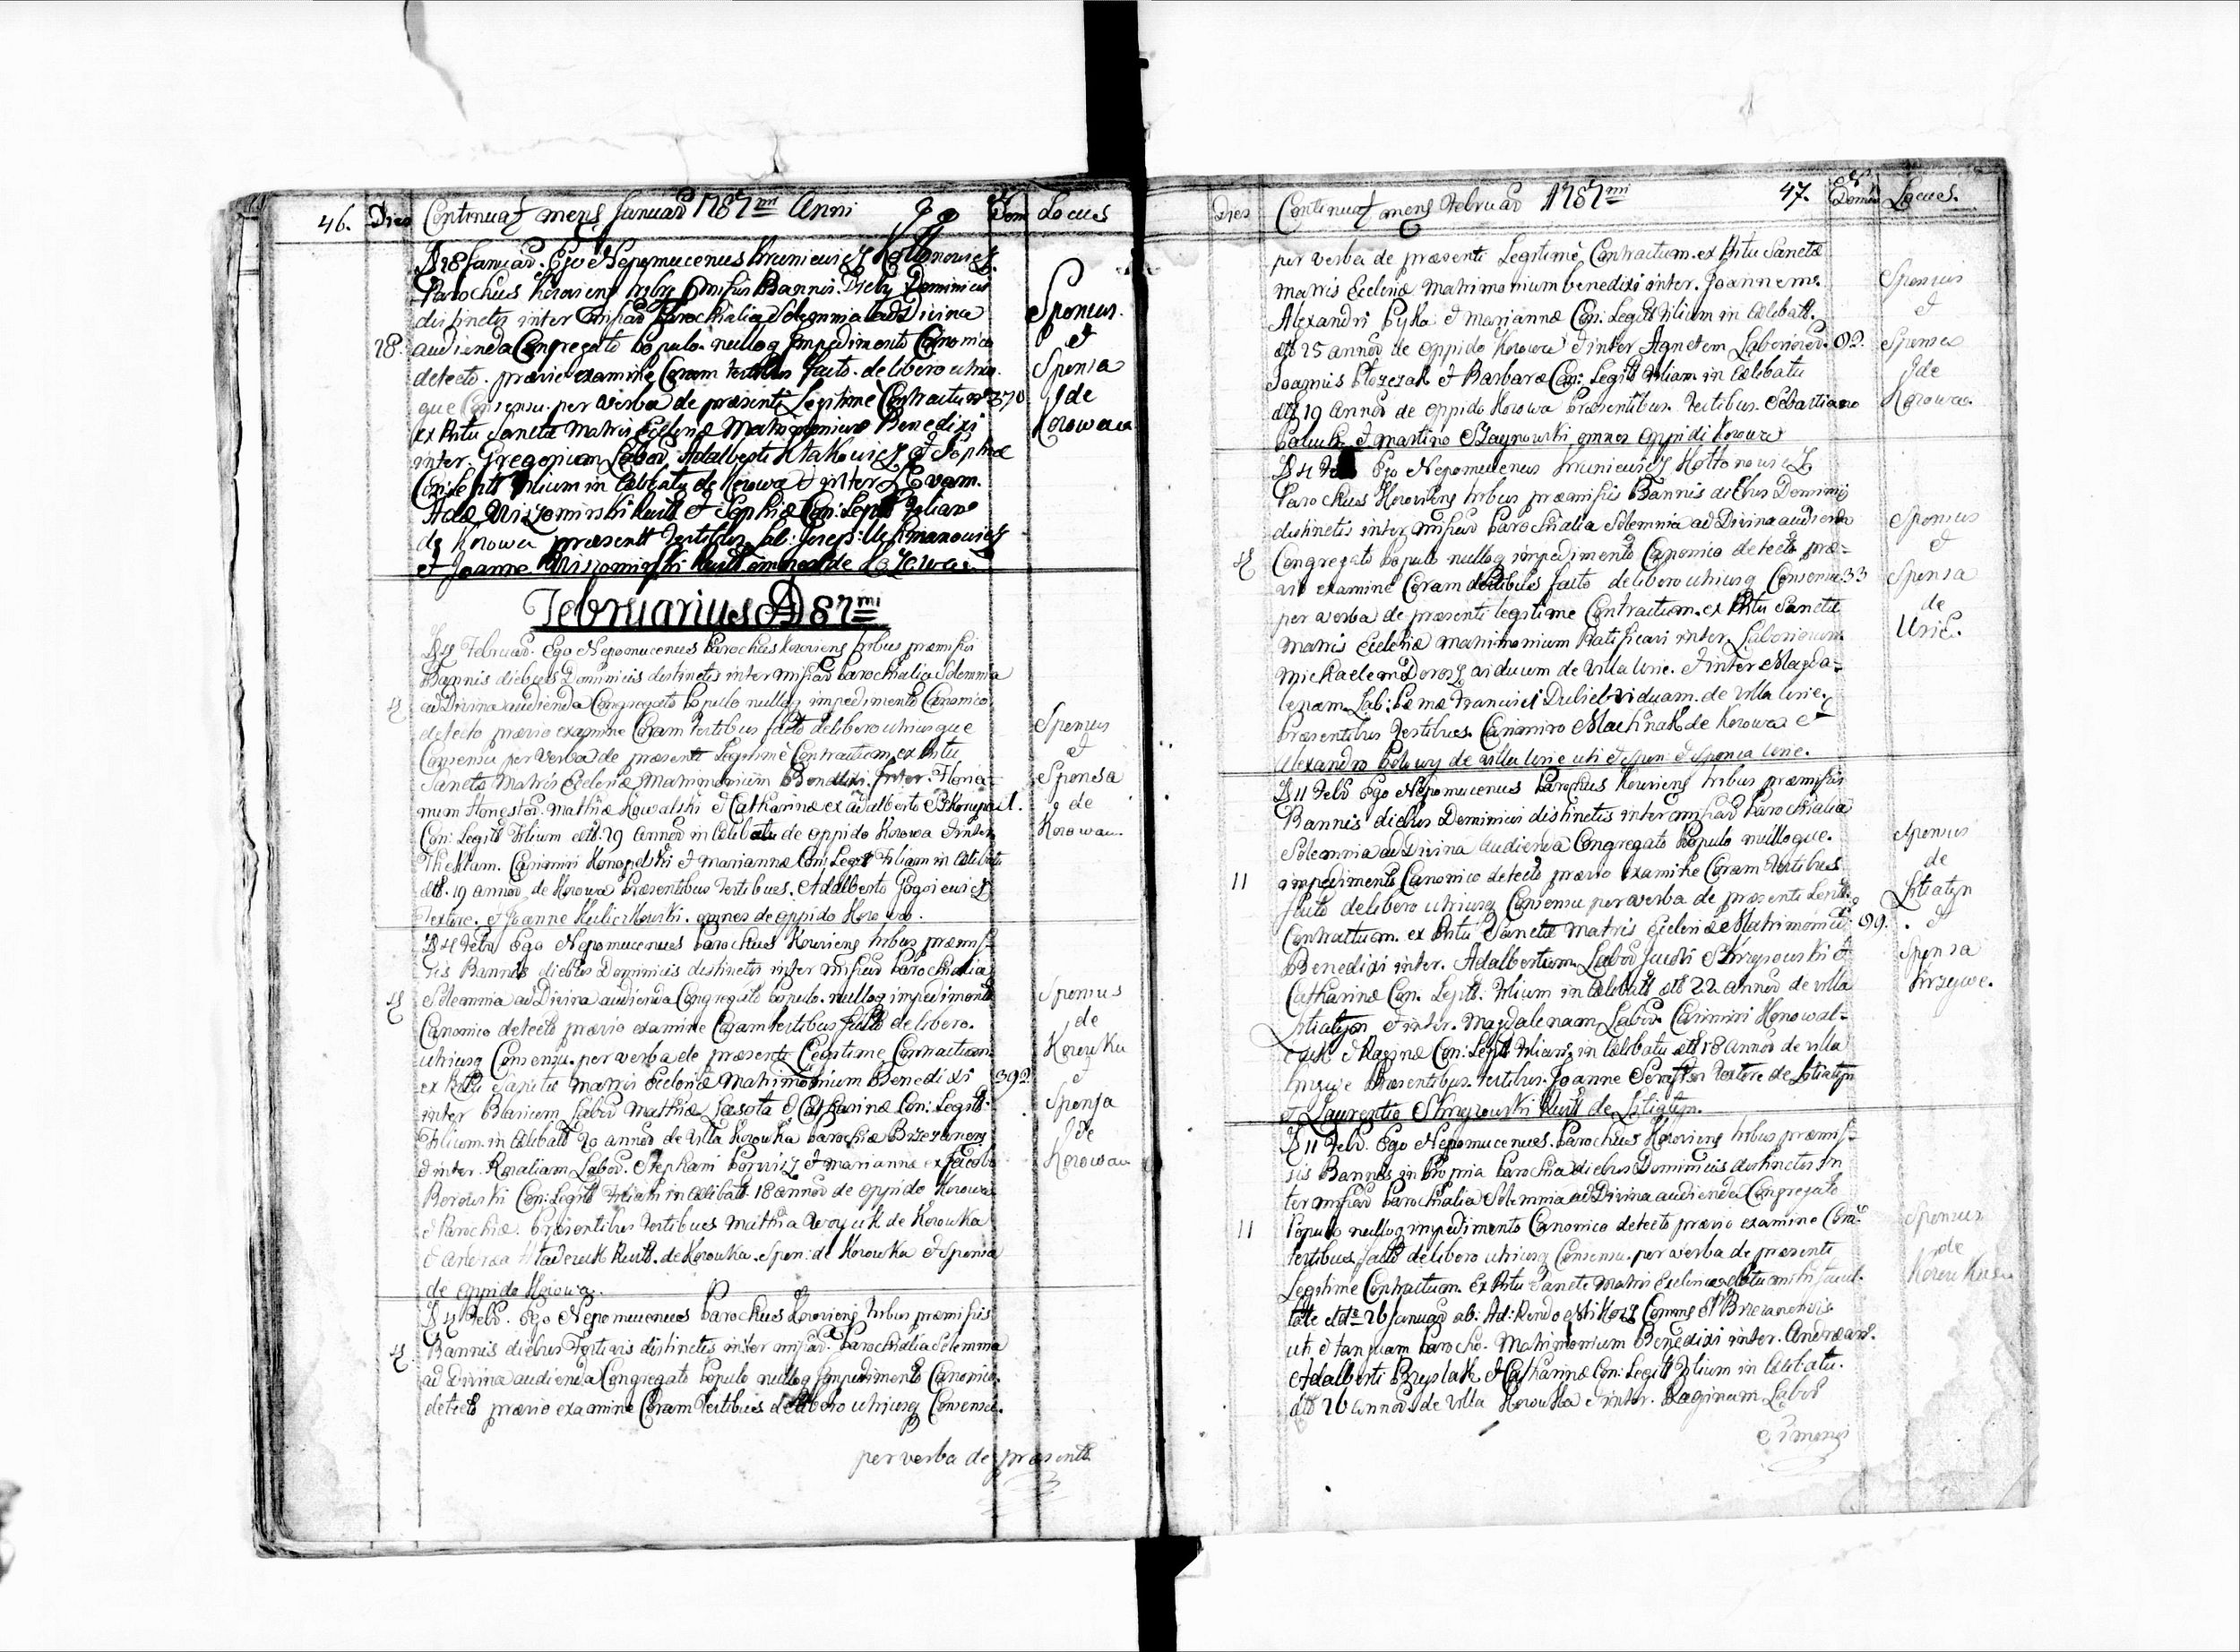 46. Dies Continuat mens Januar 1787mi Anni Dom Locus
D 28 Januar. Ego Nepomucenus Kruniewicz Kottonowicz
Parochus Kozoviens tribus Bannis Dieb Dominicis
distinctis inter Missar Parochialia Solemnia ad Divina
28. audienda Congregato Populo. nulloq Impedimento Canonico
detecto. prævio examine Coram testibus facto. de libero utrius
que Consensu. per verba de præsenti Legitime Contractum 370
ex Ritu Sanctæ Matris Ecclesiæ Matrimonium Benedixi
inter. Gregorium Labor. Adalberti et Sophiæ
Con: Legitt Filium in Cælibatu de Kozowa et inter Evam.
Adæ Rust et Sophiæ Con: Legitt Filiam
de Kozowa præsentt Testibus
et Joanne Rust omnes de Kozowa.
Sponsus.
et
Sponsa
de
Kozowa
Februarius AD 87mi
D 4 Februar. Ego Nepomucenus Parochus Kozoviens tribus præmissis
Bannis diebus Dominicis distinctis inter Missar Parochialia Solemnia
4 ad Divina audienda Congregato Populo nulloq impedimento Canonico
detecto prævio examine Coram Testibus facto de libero utriusque
Consensu per verba de præsenti Legitime Contractum ex Ritu
Sanctæ Matris Ecclesiæ Matrimonium Benedixi. Inter. Floria-
num Honestor. Mathiæ Kowalski et Catharinæ ex Adalberto
Con: Legitt Filium ætt. 29 annor in Cælibatu de oppido Kozowa et inter
Theklam. Casimiri Konopelski et Mariannæ Con: Legitt Filiam in Cælibatu
ætt. 19 annor. de Kozowa Præsentibus Testibus. Adalberto
Textore. et Joanne omnes de oppido Kozowa.
Sponsus
et
Sponsa
de
Kozowa.
D 4 Febr Ego Nepomucenus Parochus Kozoviens tribus præmis-
sis Bannis diebus Dominicis distinctis inter Missar Parochialia
4 Solemnia ad Divina audienda Congregato Populo. nulloq impedimento
Canonico detecto prævio examine Coram testibus facto de libero.
utriusq Consensu. per verba de præsenti Legitime Contractum
ex Ritu Sanctæ Matris Ecclesiæ Matrimonium Benedixi 392
inter Labor Mathiæ Lasota et Catharinæ Con: Legitt.
Filium. in Cælibatt 20 annor de Villa Kozowka Parochiæ Brzezanens
et inter. Rosaliam Labor. Stephani et Mariannæ ex Jacobo
Borowski Con: Legitt Filiam in Cælibatt. 18 annor de oppido Kozowa
et Parochiæ. Præsentibus Testibus Mathia de Kozowka
et Andrea Rust. de Kozowka. Spon: de Kozowka et Sponsa
de oppido Kozowa.
Sponsus
de
Kozowka
et
Sponsa
de
Kozowa
D 4 Febr. Ego Nepomucenus Parochus Kozoviens tribus præmissis
4. Bannis diebus Festivis distinctis inter missar. Parochialia Solemnia
ad Divina audienda Congregato Populo nulloq Impedimento Canonico.
detecto prævio examine Coram Testibus de libero utriusq Consensu.
per verba de præsenti
Dies Continuat mens Februar 1787mi 47. Domus Locus.
per verba de præsenti Legitime Contractum. ex Ritu Sanctæ
Matris Ecclesiæ Matrimonium benedixi inter. Joannem.
Alexandri Pyka et Mariannæ Con: Legitt Filium in Cælibatt.
ætt 25 annor de Oppido Kozowa et inter Agnetem Laborios. 92.
Joannis et Barbaræ Con: Legitt Filiam in Cælibatu
ætt 19 annor de oppido Kozowa Præsentibus. Testibus. Sebastiano
et Martino omnes oppidi Kozowa
Sponsus
et
Sponsa
de
Kozowa.
D 4 Feb Ego Nepomucenus Kruniewicz Kottonowicz
Parochus Kozoviens tribus præmissis Bannis diebus Dominicis
distinctis inter missar Parochialia Solemnia ad Divina audienda
4 Congregato Populo nulloq impedimento Canonico detecto præ-
vio examine Coram testibus facto de libero utriusq Consensu 33
per verba de præsenti legitime Contractum. ex Ritu Sanctæ
Matris Ecclesiæ Matrimonium Ratificavi inter Laboriosum
Michaelem Dorosz viduum de Villa Urie. et inter Magda-
lenam Lab: Francisci viduam. de Villa Urie.
Præsentibus Testibus. Casimiro Machnak de Kozowa et
Alexandro de villa Urie uti et Spon et Sponsa Urie.
Sponsus
et
Sponsa
de
Urie.
D 11 Febr Ego Nepomucenus Parochus Kozoviens tribus præmissis
Bannis diebus Dominicis distinctis inter missar Parochialia
Solemnia ad Divina audienda Congregato Populo nulloque.
11 impedimento Canonico detecto prævio examine Coram Testibus
facto de libero utriusq Consensu per verba de præsenti Legitt.
Contractum. ex Ritu Sanctæ Matris Ecclesiæ Matrimonium 99.
Benedixi inter. Adalbertum. Labor et
Catharinæ Con. Legitt. Filium in Cælibatt ætt 22 annor de villa
Litiatyn et inter. Magdalenam Labor. Casimiri Konowal-
czuk et Reginæ Con: Legitt Filiam in Cælibatu ætt 18 annor de villa
Krzywe Præsentibus. Testibus. Joanne Textore de Litiatyn
et Laurentio Rust de Litiatyn.
Sponsus
de
Litiatyn
et
Sponsa
Krzywe.
D 11 Febr. Ego Nepomucenus. Parochus Kozoviens tribus præmis-
sis Bannis in Propria Parochia diebus Dominicis distinctis in
ter missar Parochialia Solemnia ad Divina audienda Congregato
11 Populo nulloq impedimento Canonico detecto prævio examine Corā
testibus facto de libero utriusq Consensu. per verba de præsenti
Legitime Contractum. Ex Ritu Sanctæ Matris Ecclesiæ datu mihi facul-
tate 26 Januar ab: Ad: Rendo Brzezanensis.
uti et tanquam Parocho. Matrimonium Benedixi inter. Andream.
Adalberti et Catharinæ Con: Legitt Filium in Cælibatu.
ætt 26 annor de Villa Kozowka et inter. Reginam Labor
Simonis
Sponsus
de
Kozowka